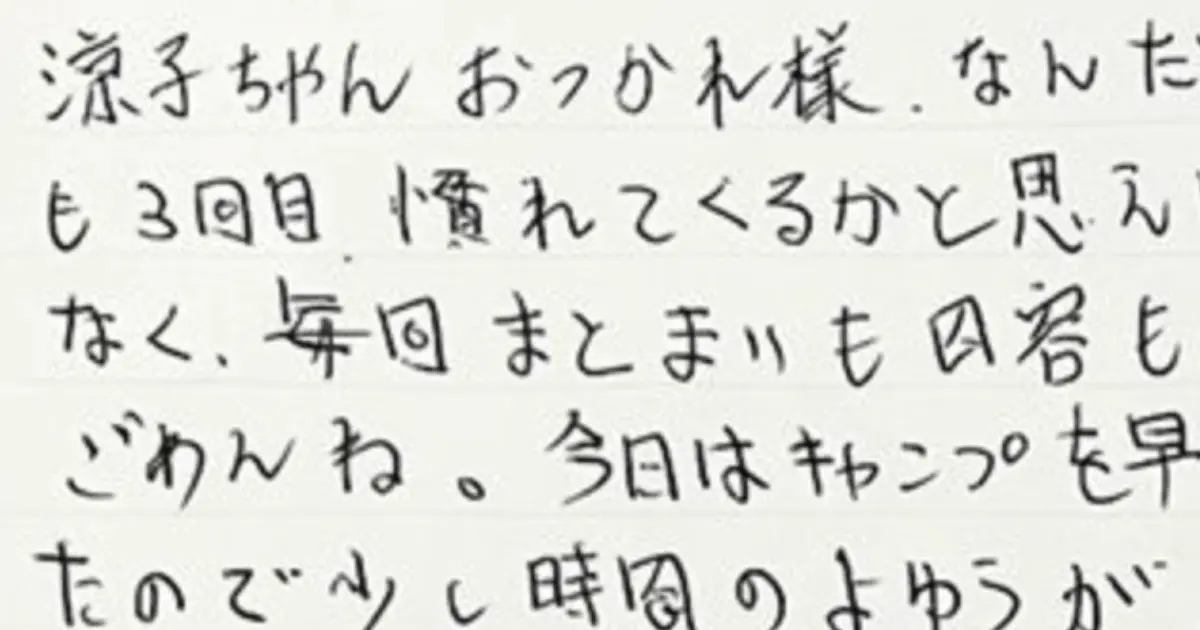 涼子ちゃん おつかれ様. なんだ
も3回目. 慣れてくるかと思え
なく. 毎回 まとまりも内容も
ごめんね。今日はキャンプを早
たので少し時間のよゆうが